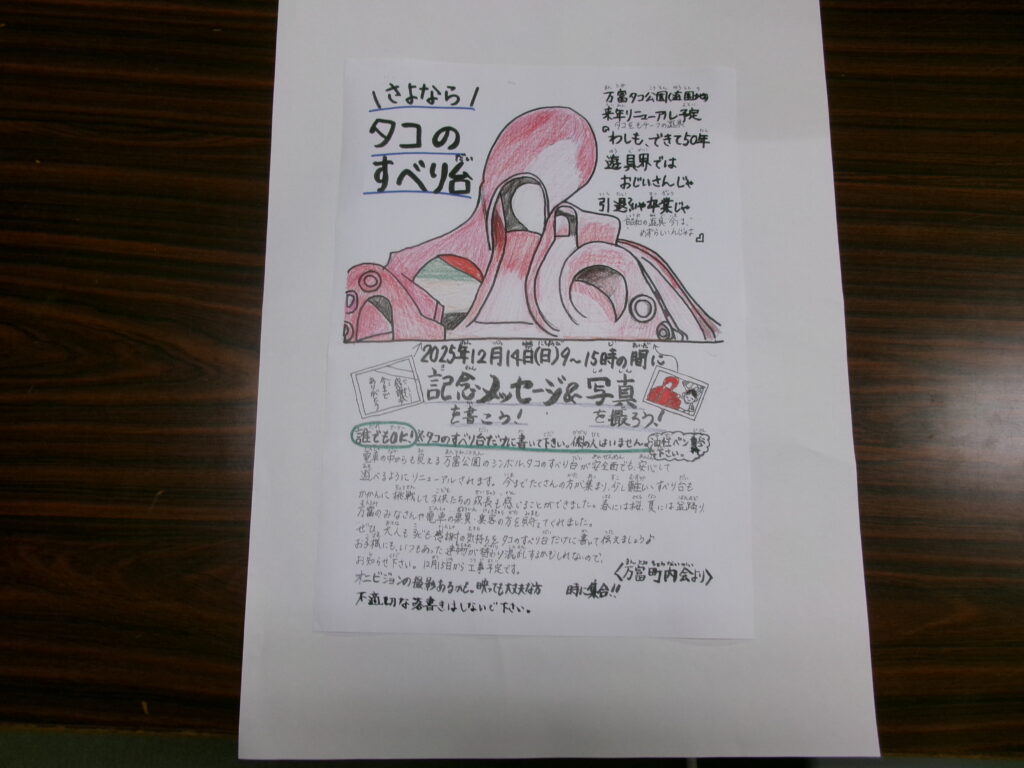 さよなら
タコの
すべり台
万富タコ公園(遊園地)
来年リニューアル予定
タコをモチーフの遊具
『わしも、できて50年
遊具界では
おじいさんじゃ
引退じゃ卒業じゃ
昭和の遊具 今は、
めずらしいんじゃよ』
2025年12月14日(日)9～15時の間に
今まで
ありがとう
記念メッセージ&写真
を書こう! を撮ろう!
誰でもOK! &タコのすべり台だけに書いて下さい。係の人はいません。油性ペン
下さい。
電車の中からも見える万富公園のシンボル、タコのすべり台が安全面でも、安心して
遊べるようにリニューアルされます。今までたくさんの方が集まり、少し難しいすべり台も
かかんに挑戦して子供たちの成長も感じることができました。春には桜、夏には盆踊り
万富のみなさんや電車の乗員・乗客の方を
ぜひ、大人も子ども感謝の気持ちを タコのすべり台だけに書いて伝えましょうよ
お子様にも、いつもあった遊具が替わり混乱するかもしれないので、
お知らせ下さい。12月15日から工事予定です。
〈万富町内会より〉
オニビジョンの撮影あるかも。映っても大丈夫な方 時に集合!!
不適切な落書きはしないで下さい。